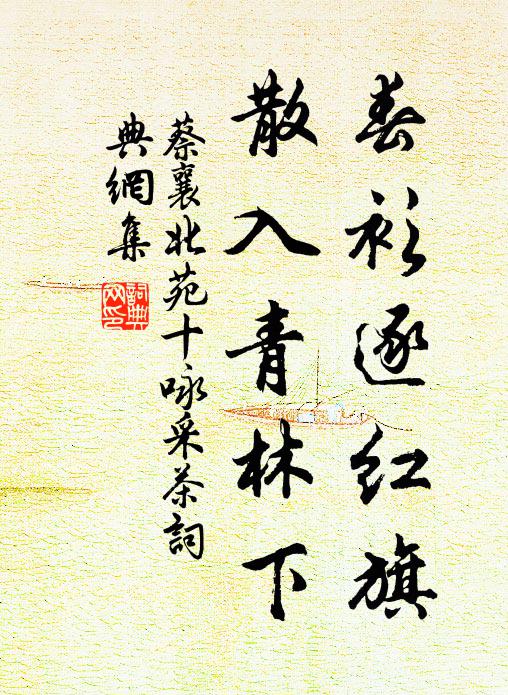 春衫逐红旗
散入青林下
蔡襄北苑十咏采茶詞
典網集
詞典網印